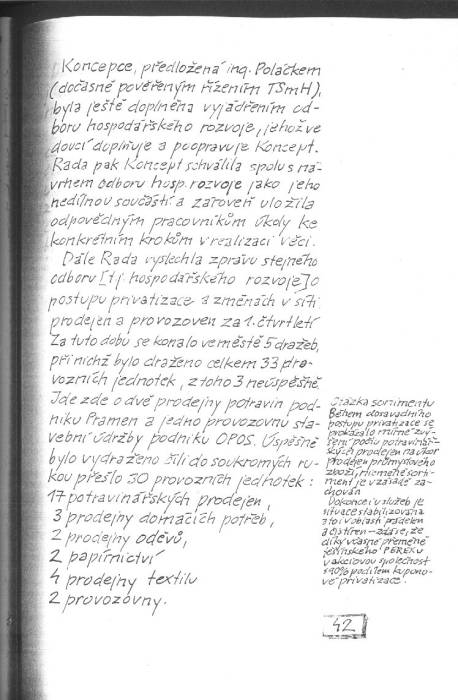 Koncepce, předložená ing. Poláčkem
(dočasně pověřeným řízením TSmH),
byla ještě doplněna vyjádřením od-
boru hospodářského rozvoje, jehož ve
doucí doplňuje a poopravuje Koncept.
Rada pak Koncept schválila spolu s ná-
vrhem odboru hosp. rozvoje jako jeho
nedílnou součástí a zároveň uložila
odpovědným pracovníkům úkoly ke
konkrétním krokům v realizaci věci.
Dále Rada vyslechla zprávu stejného
odboru [tj. hospodářského rozvoje] o
postupu privatizace a změnách v síti
prodejen a provozoven za 1. čtvrtletí
Za tuto dobu se konalo ve městě 5 dražeb,
při nichž bylo draženo celkem 33 pro-
vozních jednotek, z toho 3 neúspěšně.
Jde zde o dvě prodejny potravin pod-
niku Pramen a jedno provozovnu sta-
vební údržby podniku OPOS. Úspěšně
bylo vydraženo čili do soukromých ru-
kou přešlo 30 provozních jednotek:
17 potravinářských prodejen,
3 prodejny domácích potřeb,
2 prodejny oděvů,
2 papírnictví
4 prodejny textilu
2 provozovny.
Otázka sortimentu
Během dosavadního
postupu privatizace se
prokázalo mírné zvý-
šení počtu potravinář-
ských prodejen na úkor
prodejen průmyslového
zboží, nicméně sorti-
ment je v zásadě za-
chován
Dokonce i v službách je
situace stabilizovaná
a to i v oblasti prádelen
a čistíren – zdá se, že
díky včasné přeměně
PEREKU
v akciovou společnost
s 90% podílem kupóno-
vé privatizace.
42